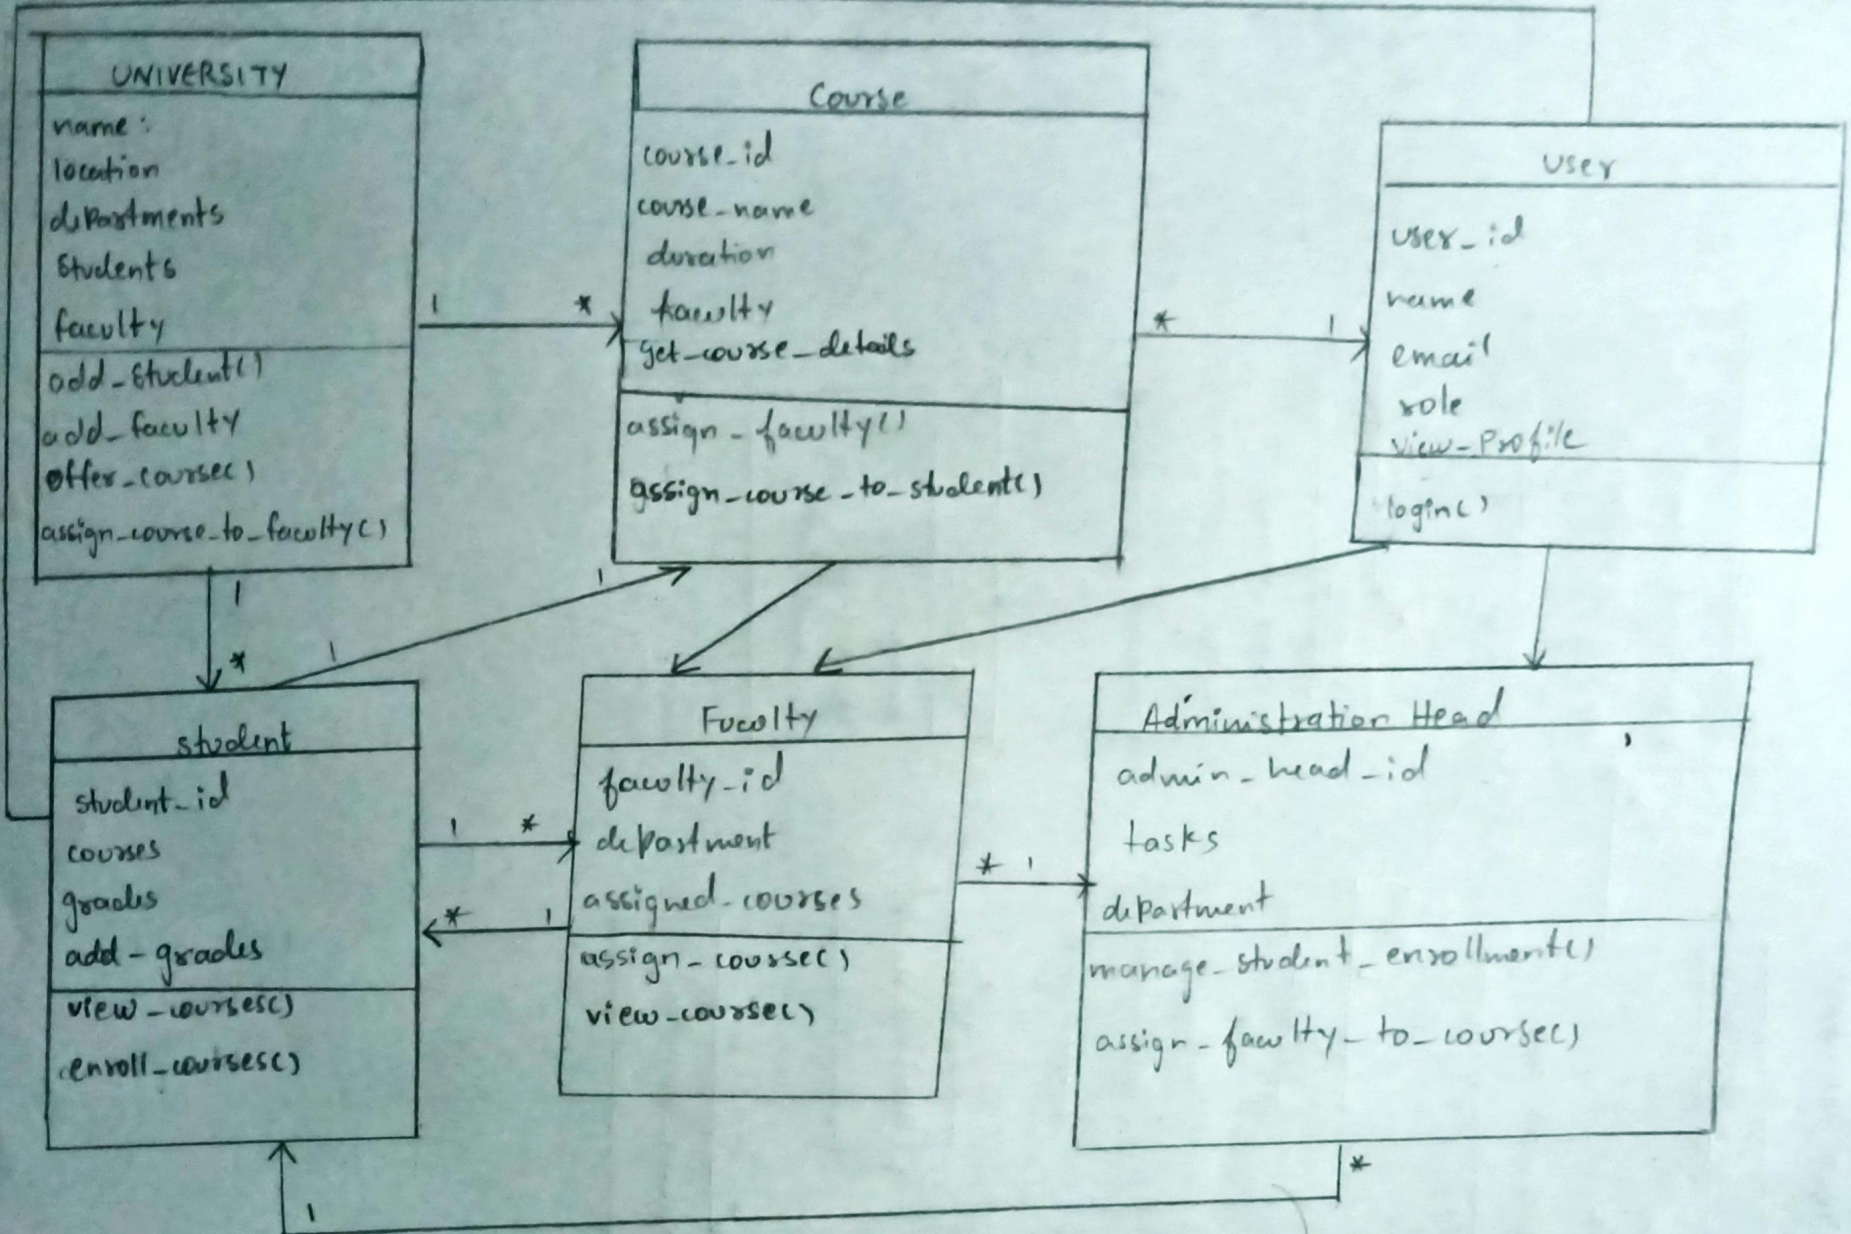 UNIVERSITY
name :
location
departments
Students
faculty
add_Student()
add_faculty
offer_course()
assign_course_to_faculty()
1
*
Course
course_id
course_name
duration
faculty
get_course_details
assign_faculty()
assign_course_to_student()
*
1
User
user_id
name
email
role
view_Profile
login()
1
*
1
1
student
student_id
courses
grades
add-grades
view_courses()
enroll_courses()
1
*
*
1
Faculty
faculty_id
department
assigned_courses
assign_course()
view_course()
*
1
Administration Head
admin_head_id
tasks
department
manage_student_enrollment()
assign_faculty_to_course()
*
1